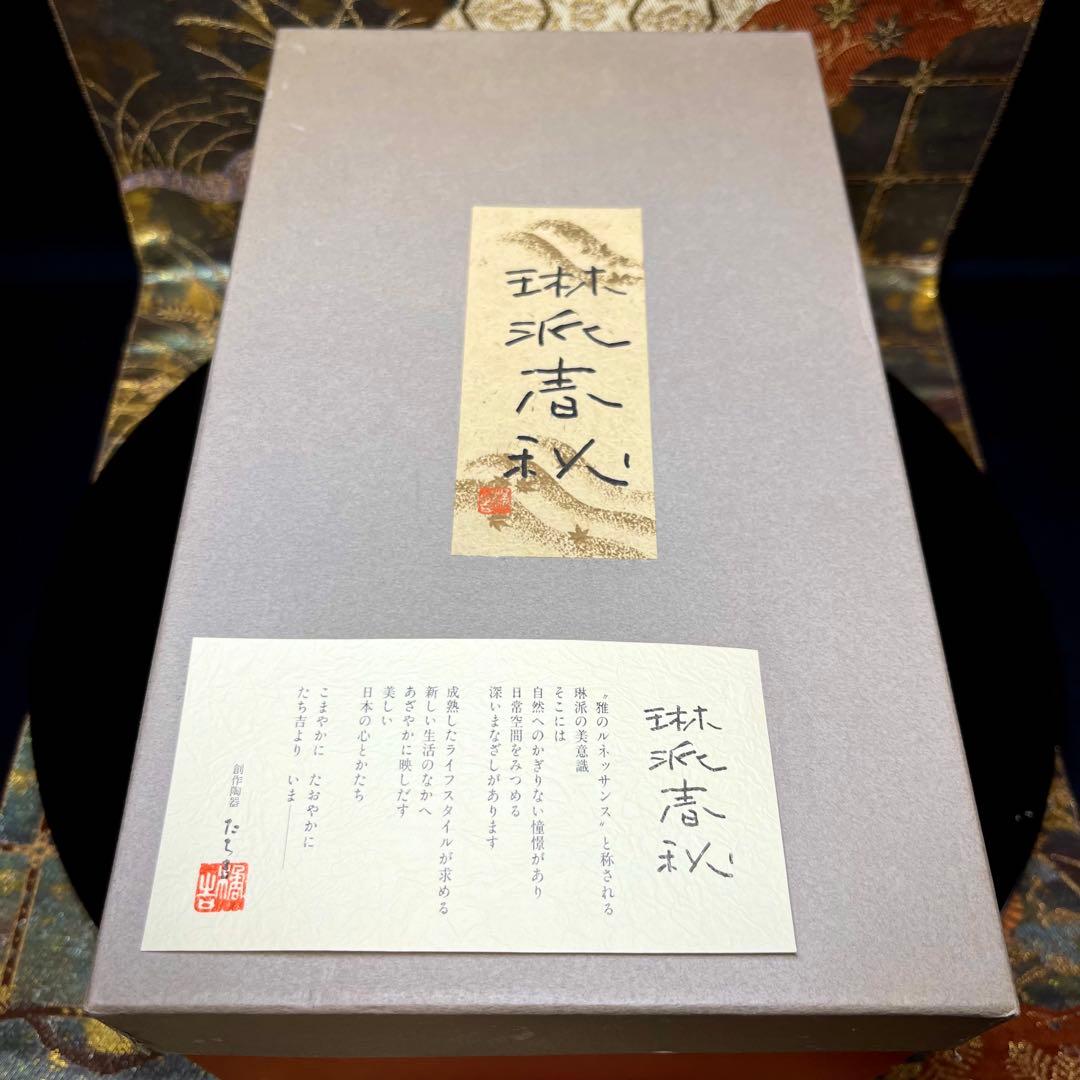 琳派春秋
琳派春秋
〝雅のルネッサンス〟と称される
琳派の美意識
そこには
自然へのかぎりない憧憬があり
日常空間をみつめる
深いまなざしがあります
成熟したライフスタイルが求める
新しい生活のなかへ
あざやかに映しだす
美しい
日本の心とかたち
こまやかに たおやかに
たち吉より いま――
創作陶器 たち吉
橘吉